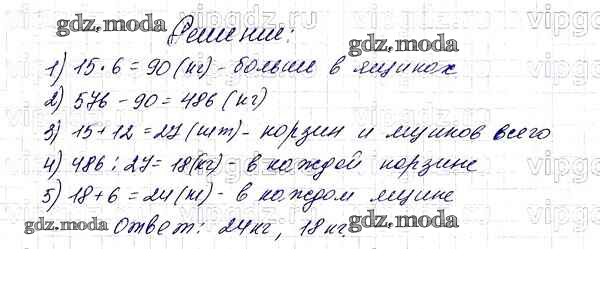 Решение:
1) 15 · 6 = 90 (кг) - больше в ящиках
2) 576 - 90 = 486 (кг)
3) 15 + 12 = 27 (шт) - корзин и ящиков всего
4) 486 : 27 = 18 (кг) - в каждой корзине
5) 18 + 6 = 24 (кг) - в каждом ящике
Ответ: 24 кг, 18 кг.
gdz.moda
gdz.moda
gdz.moda
gdz.moda
vipgdz.ru
vipgdz.ru
vipgdz.ru
vipgdz.ru